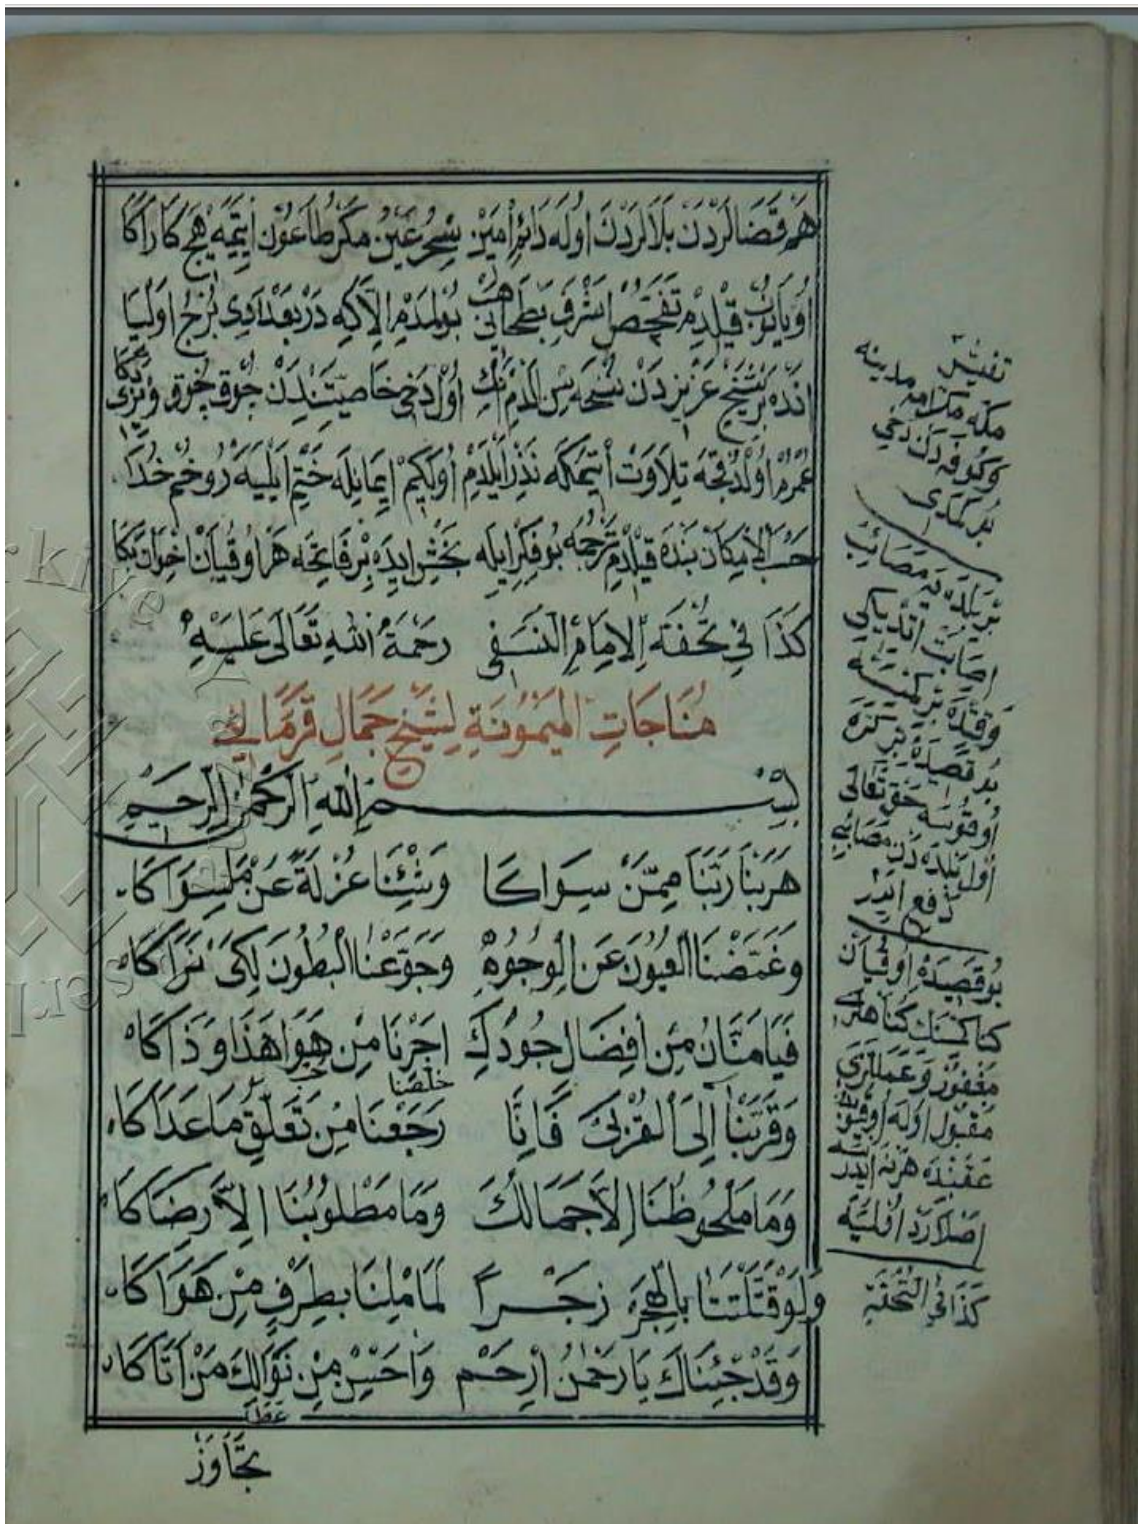 هَرْ قَضَالَرْدَنْ بَلَالَرْدَنْ اُولَه دَائِمْ اَمِينْ سِحْرِ عَيْنْ مَكْرِ طَاعُونْ اِيتْمَيَه هِيچْ كَارْ اَكَا
اُويَانُوبْ قِيلْدِمْ تَفَحُّصْ اَشْرَفِ بَطْحَايِى هَبْ بُولْمَدِمْ اِلَّا كِه دَرْ بَغْدَادِى بُرْجِ اَوْلِيَا
اَنْدَه بِرْ شَيْخِ عَزِيزْدَنْ نُسْخَه سِنْ اَلْدِمْ اَنِكْ اُولْ دَخِى خَاصِيَّتِنْدَنْ چُوقْ چُوقْ وِيرْدِى بَكَا
عُمْرُمْ اُولْدُقْجَه تِلَاوَتْ اِيتْمَكَه نَذِرْ اَيْلَدِمْ اُولَكِمْ اِيمَانِلَه خَتْمْ اَيْلَيَه رُوحُمْ خُدَا
حَسْبَ الْاِمْكَانْ بَنْدَه قِيلْدِمْ تَرْجُمَه بُو فِكْرِ اِيلَه بَخْشْ اِيدَه بِرْ فَاتِحَه هَرْ اُوقُيَانْ اِخْوَانْ بَكَا
كَذَا فِي تُحْفَةِ الْاِمَامِ النَّسَفِى رَحْمَةُ اللهِ تَعَالَى عَلَيْهِ
مُنَاجَاتِ الْمَيْمُونَةِ لِشَيْخِ جَمَالِ قَرَمَانِي
بِسْمِ اللهِ الرَّحْمٰنِ الرَّحِيمِ
هَرَبْنَا رَبَّنَا مِمَّنْ سِوَاكَا وَشِئْنَا عُزْلَةً عَنْ مَاسِوَاكَا
وَغَمَّضْنَا الْعُيُونَ عَنِ الْوُجُوهِ وَجَوَّعْنَا الْبُطُونَ لِكَىْ نَرَاكَا
فَيَا مَنَّانُ مِنْ اَفْضَالِ جُودِكَ اَجِرْنَا مِنْ هَوَا هَذَا وَذَاكَا
خَلِّصْنَا
وَقَرِّبْنَا اِلَى الْقُرْبَى فَاِنَّا رَجَعْنَا مِنْ تَعَلُّقِ مَاعَدَاكَا
وَمَا مَلْحُوظُنَا اِلَّا جَمَالَكَ وَمَا مَطْلُوبُنَا اِلَّا رِضَاكَا
وَلَوْ قَتَّلْتَنَا بِالْهَجْرِ زَجْرًا لَمَا مِلْنَا بِطَرْفٍ مِنْ هَوَاكَا
وَقَدْ جِئْنَاكَ يَا رَحْمٰنُ اِرْحَمْ وَاَحْسِنْ مِنْ نَوَالِكَ مَنْ اَتَاكَا
عطا
تَجَاوَزْ
تفتيش
مكه مكرمه مدينه
وكوفه دن دخى
بر كمدى
بر بلده يه مصائب
اصابت ايتديكى
وقتده بر كمسنه
بو قصيده يى بر كره
اوقوسه حق تعالى
اول بلده دن مصائبى
دفع ايدر
بو قصيده اوقيان
كمسنك كناهلرى
مغفور وعمللرى
مقبول اوله اوقيوب
عقبنده هر نه ايدرسه
اصلا رد اولميه
كذا فى التحفة